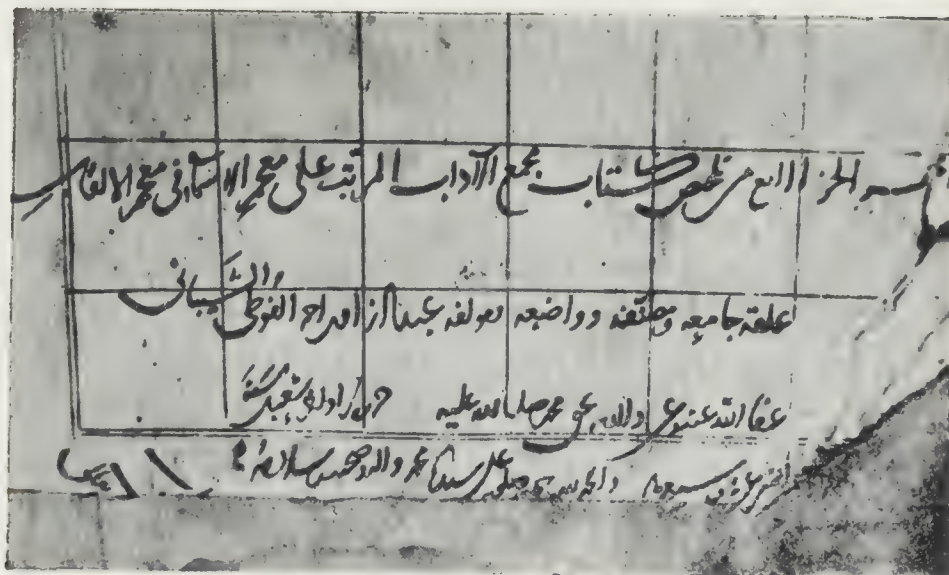 الجزء الرابع من تلخيص كتاب مجمع الآداب المرتب على معجم الاسماء في معجم الالقاب
علقه جامعه ومصنفه وواضعه ومولفه عبد الرزاق بن احمد الفوطي الشيباني
عفا الله عنه وعن والديه بحق محمد صلى الله عليه شعبان سنة
اثني عشرة وسبعمائة والحمد لله وصلواته على سيدنا محمد واله وصحبه وسلامه